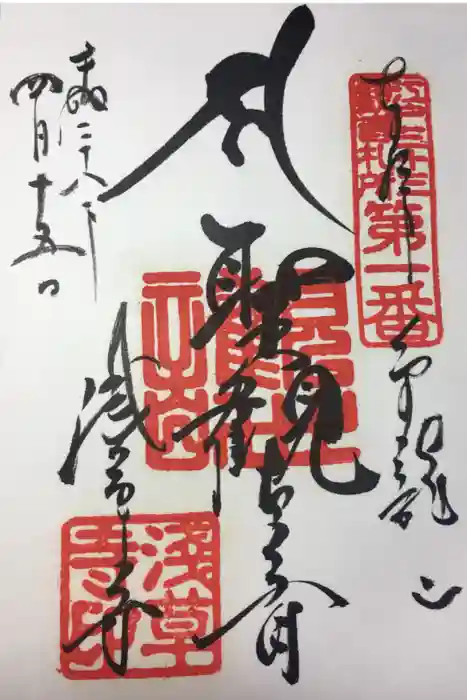 奉拝
金龍山
江戸三十三
観音札所
第一番
聖観世音
浅草寺
淺草
寺印
平成二十八年
四月十五日